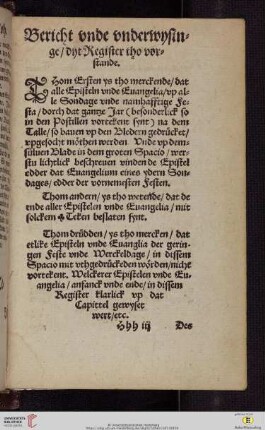 Bericht vnde vnderwysin-
ge / dyt Register tho vor-
stande.
THom Ersten ys tho merckende / dat
alle Episteln vnde Euangelia / vp al-
le Sondage vnde namhafftige Fe-
sta / dorch dat gantze Jar (besonderlick so
in den Postillen vortekent synt) na dem
Talle / so bauen vp den Bledern gedrücket /
vpgesocht möthen werden. Vnde vp dem-
süluen Blade in dem groten Spacio / wer-
stu lichtlick beschreuen vinden de Epistel
edder dat Euangelium eines ydern Son-
dages / edder der vornemesten Festen.
Thom andern / ys tho wetende / dat de
vnde aller Episteln vnde Euangelia / mit
solckem ✠ Teken beslaten synt.
Thom drüdden / ys tho mercken / dat
etlike Episteln vnde Euanglia der gerin-
gen Feste vnde Werckeldage / in dissem
Spacio mit vthgedrückeden wörden / nicht
vortekent. Welckerer Epistelen vnde Eu-
angelia / anfanck vnde ende / in dissem
Register klarlick vp dat
Capittel gewyset
wert / etc.
Hhh iij Des